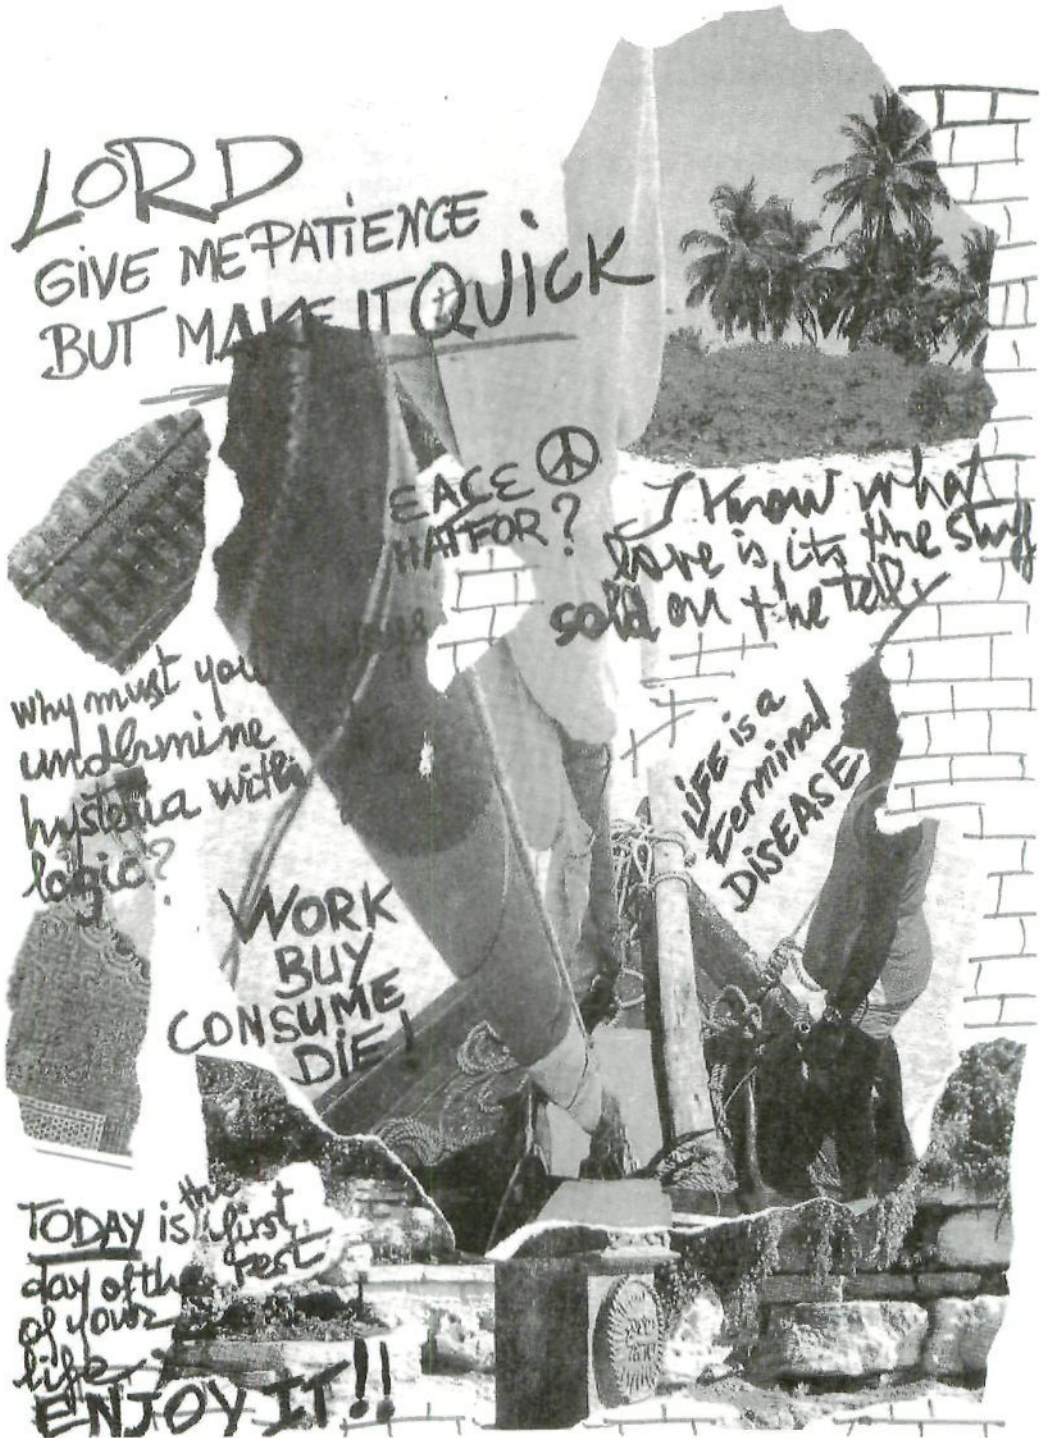 LORD
GIVE ME PATIENCE
BUT MAKE IT QUICK
EACE
HATFOR?
I Know what
love is, its the stuff
sold on the telly
why must you
undermine
hysteria with
logic?
LIFE is a
terminal
DISEASE
WORK
BUY
CONSUME
DIE!
TODAY is the first
day of the rest
of your
life
ENJOY IT!!